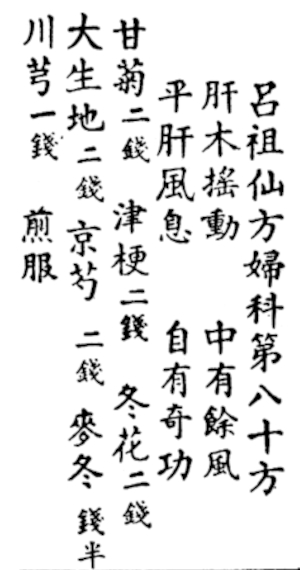 呂祖仙方婦科第八十方
肝木搖動 中有餘風
平肝風息 自有奇功
甘菊二錢 津梗二錢 冬花二錢
大生地二錢 京芍二錢 麥冬錢半
川芎一錢 煎服